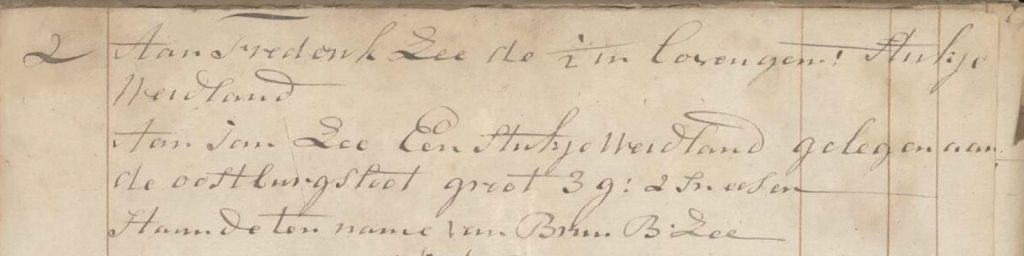 2 Aan Frederik Zee de ½ in bovengem: Stukje
Weidland
Aan Jan Zee Een Stukje Weidland gelegen aan
de oostburgsloot groot 3 g: 2 Sneesen
Staande ten name van Bruin B: Zee